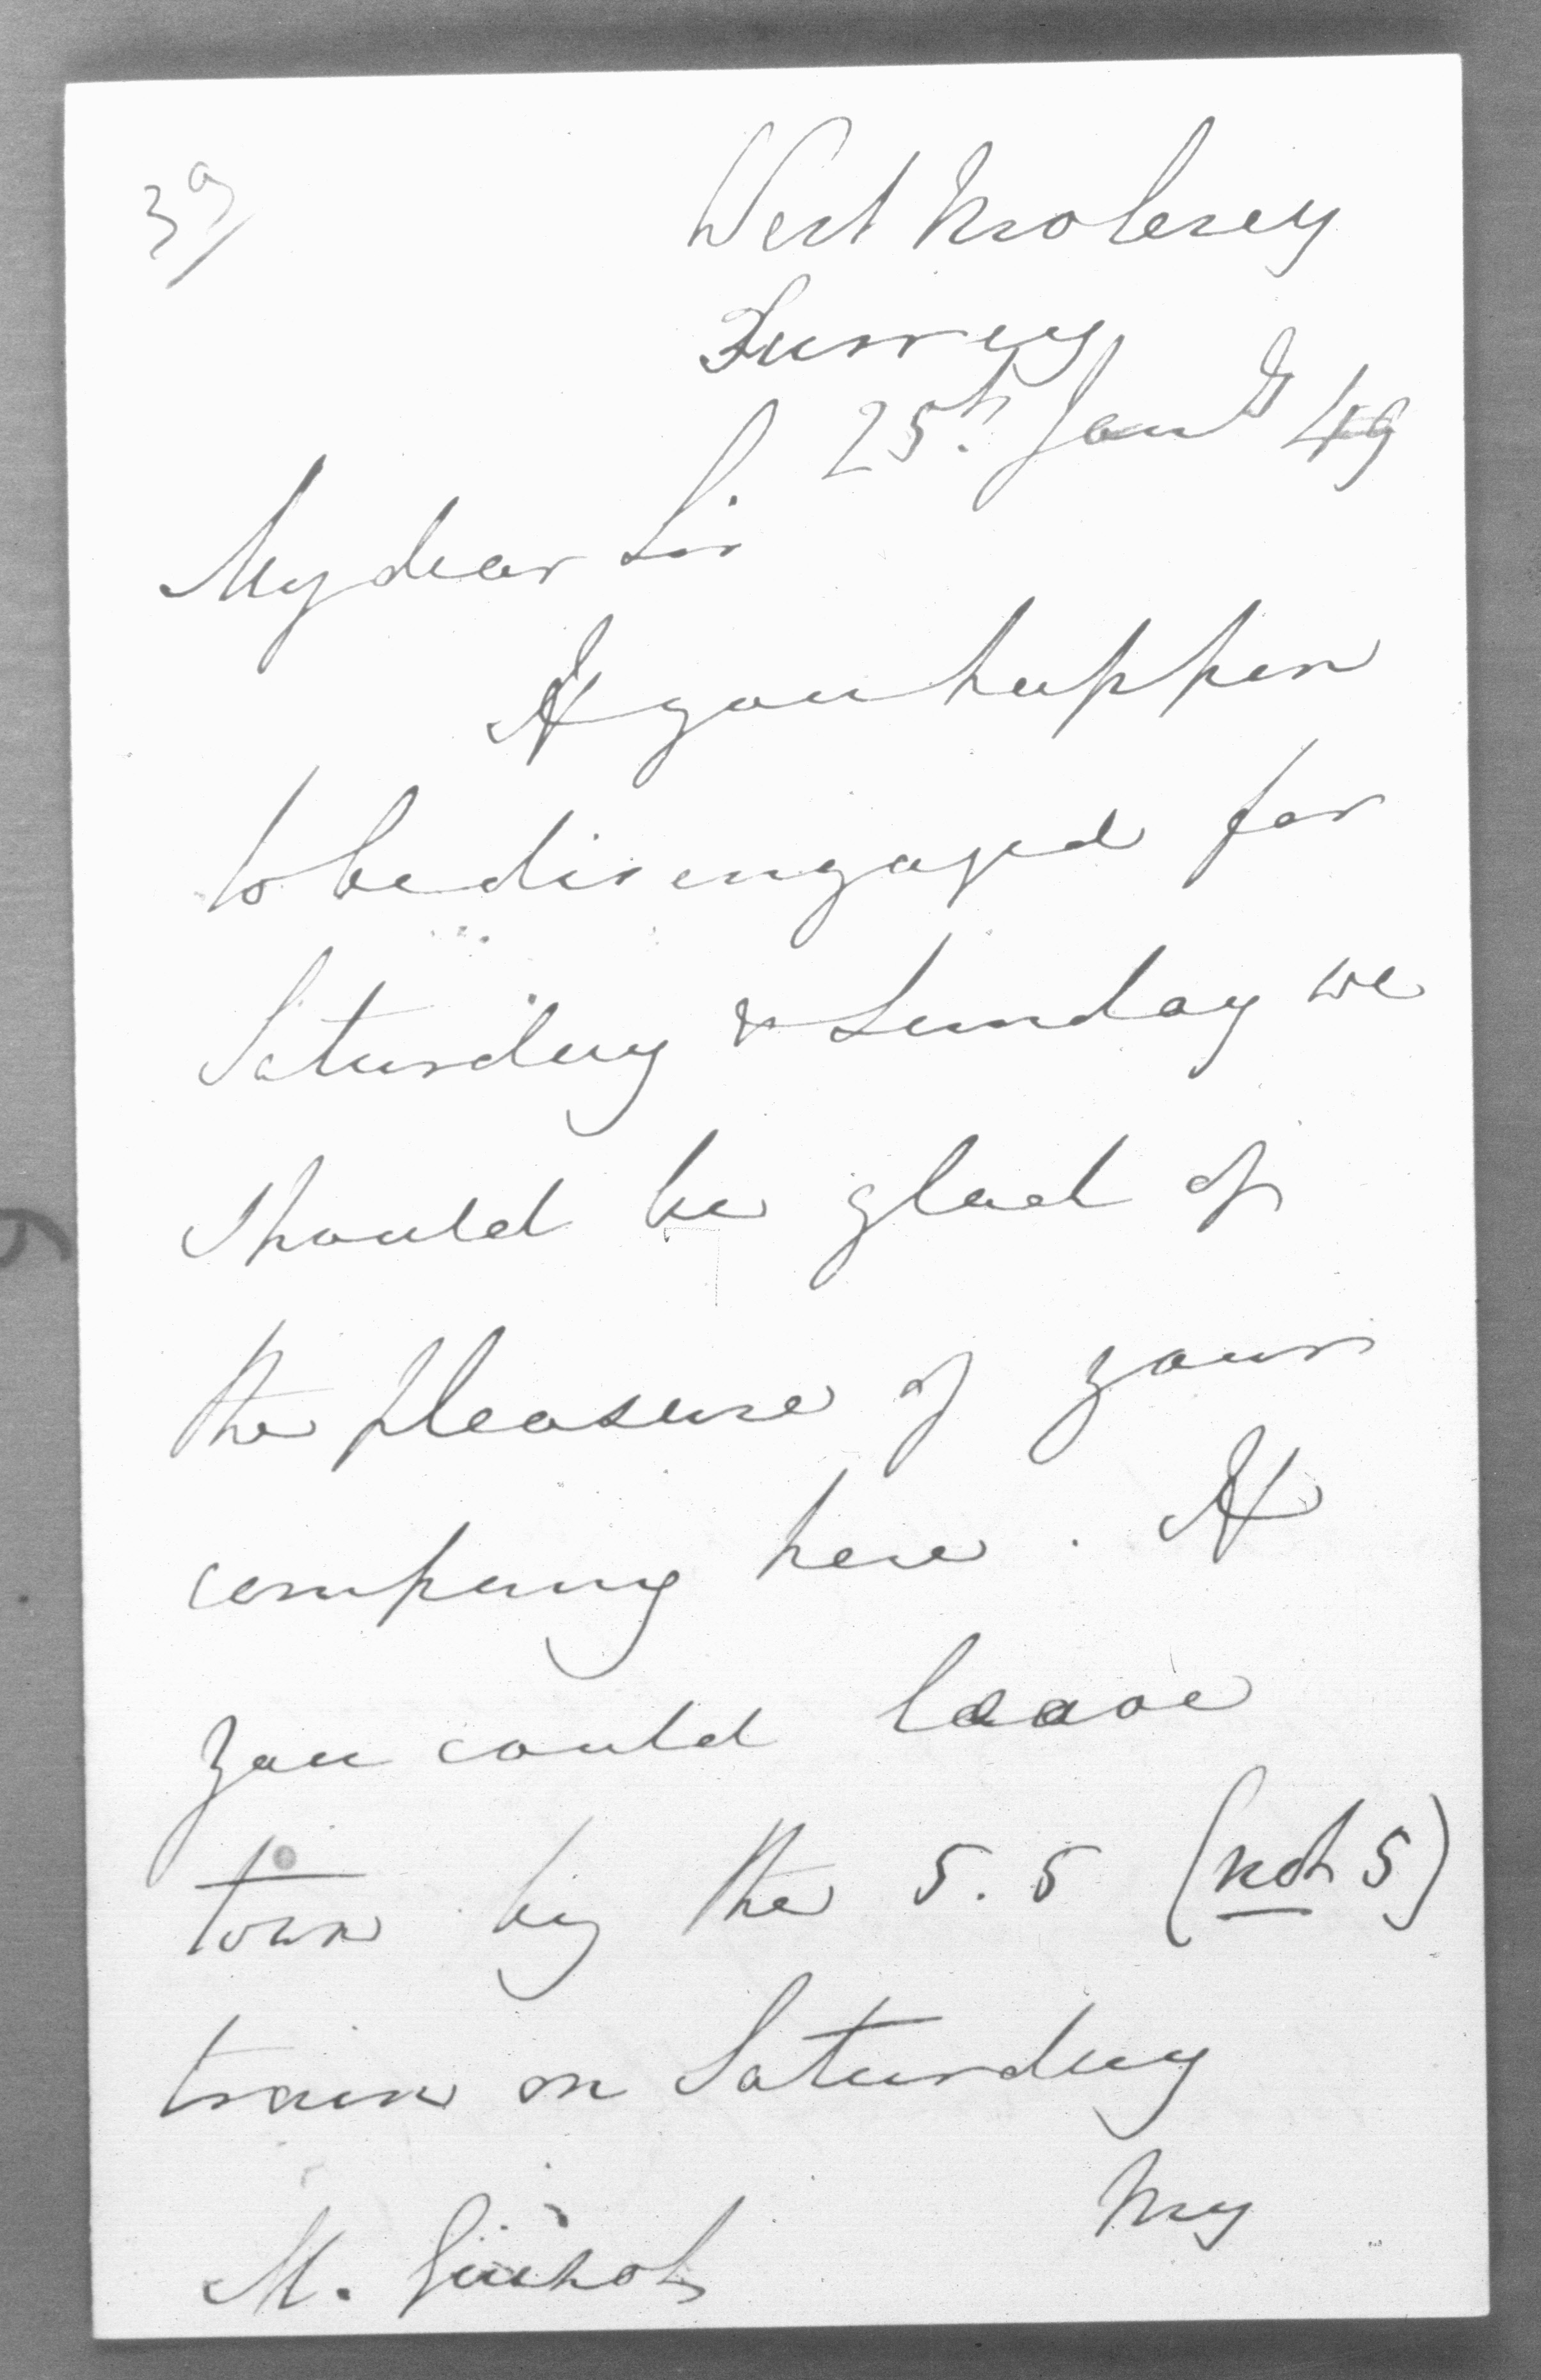 39
West Molesey
Surrey
25th. Jany 49
My dear Sir
If you happen
to be disengaged for
Saturday & Sunday we
should be glad of
the pleasure of your
company here. If
you could leave
town by the 5.5 (not 5)
train on Saturday
my
M. Guizot